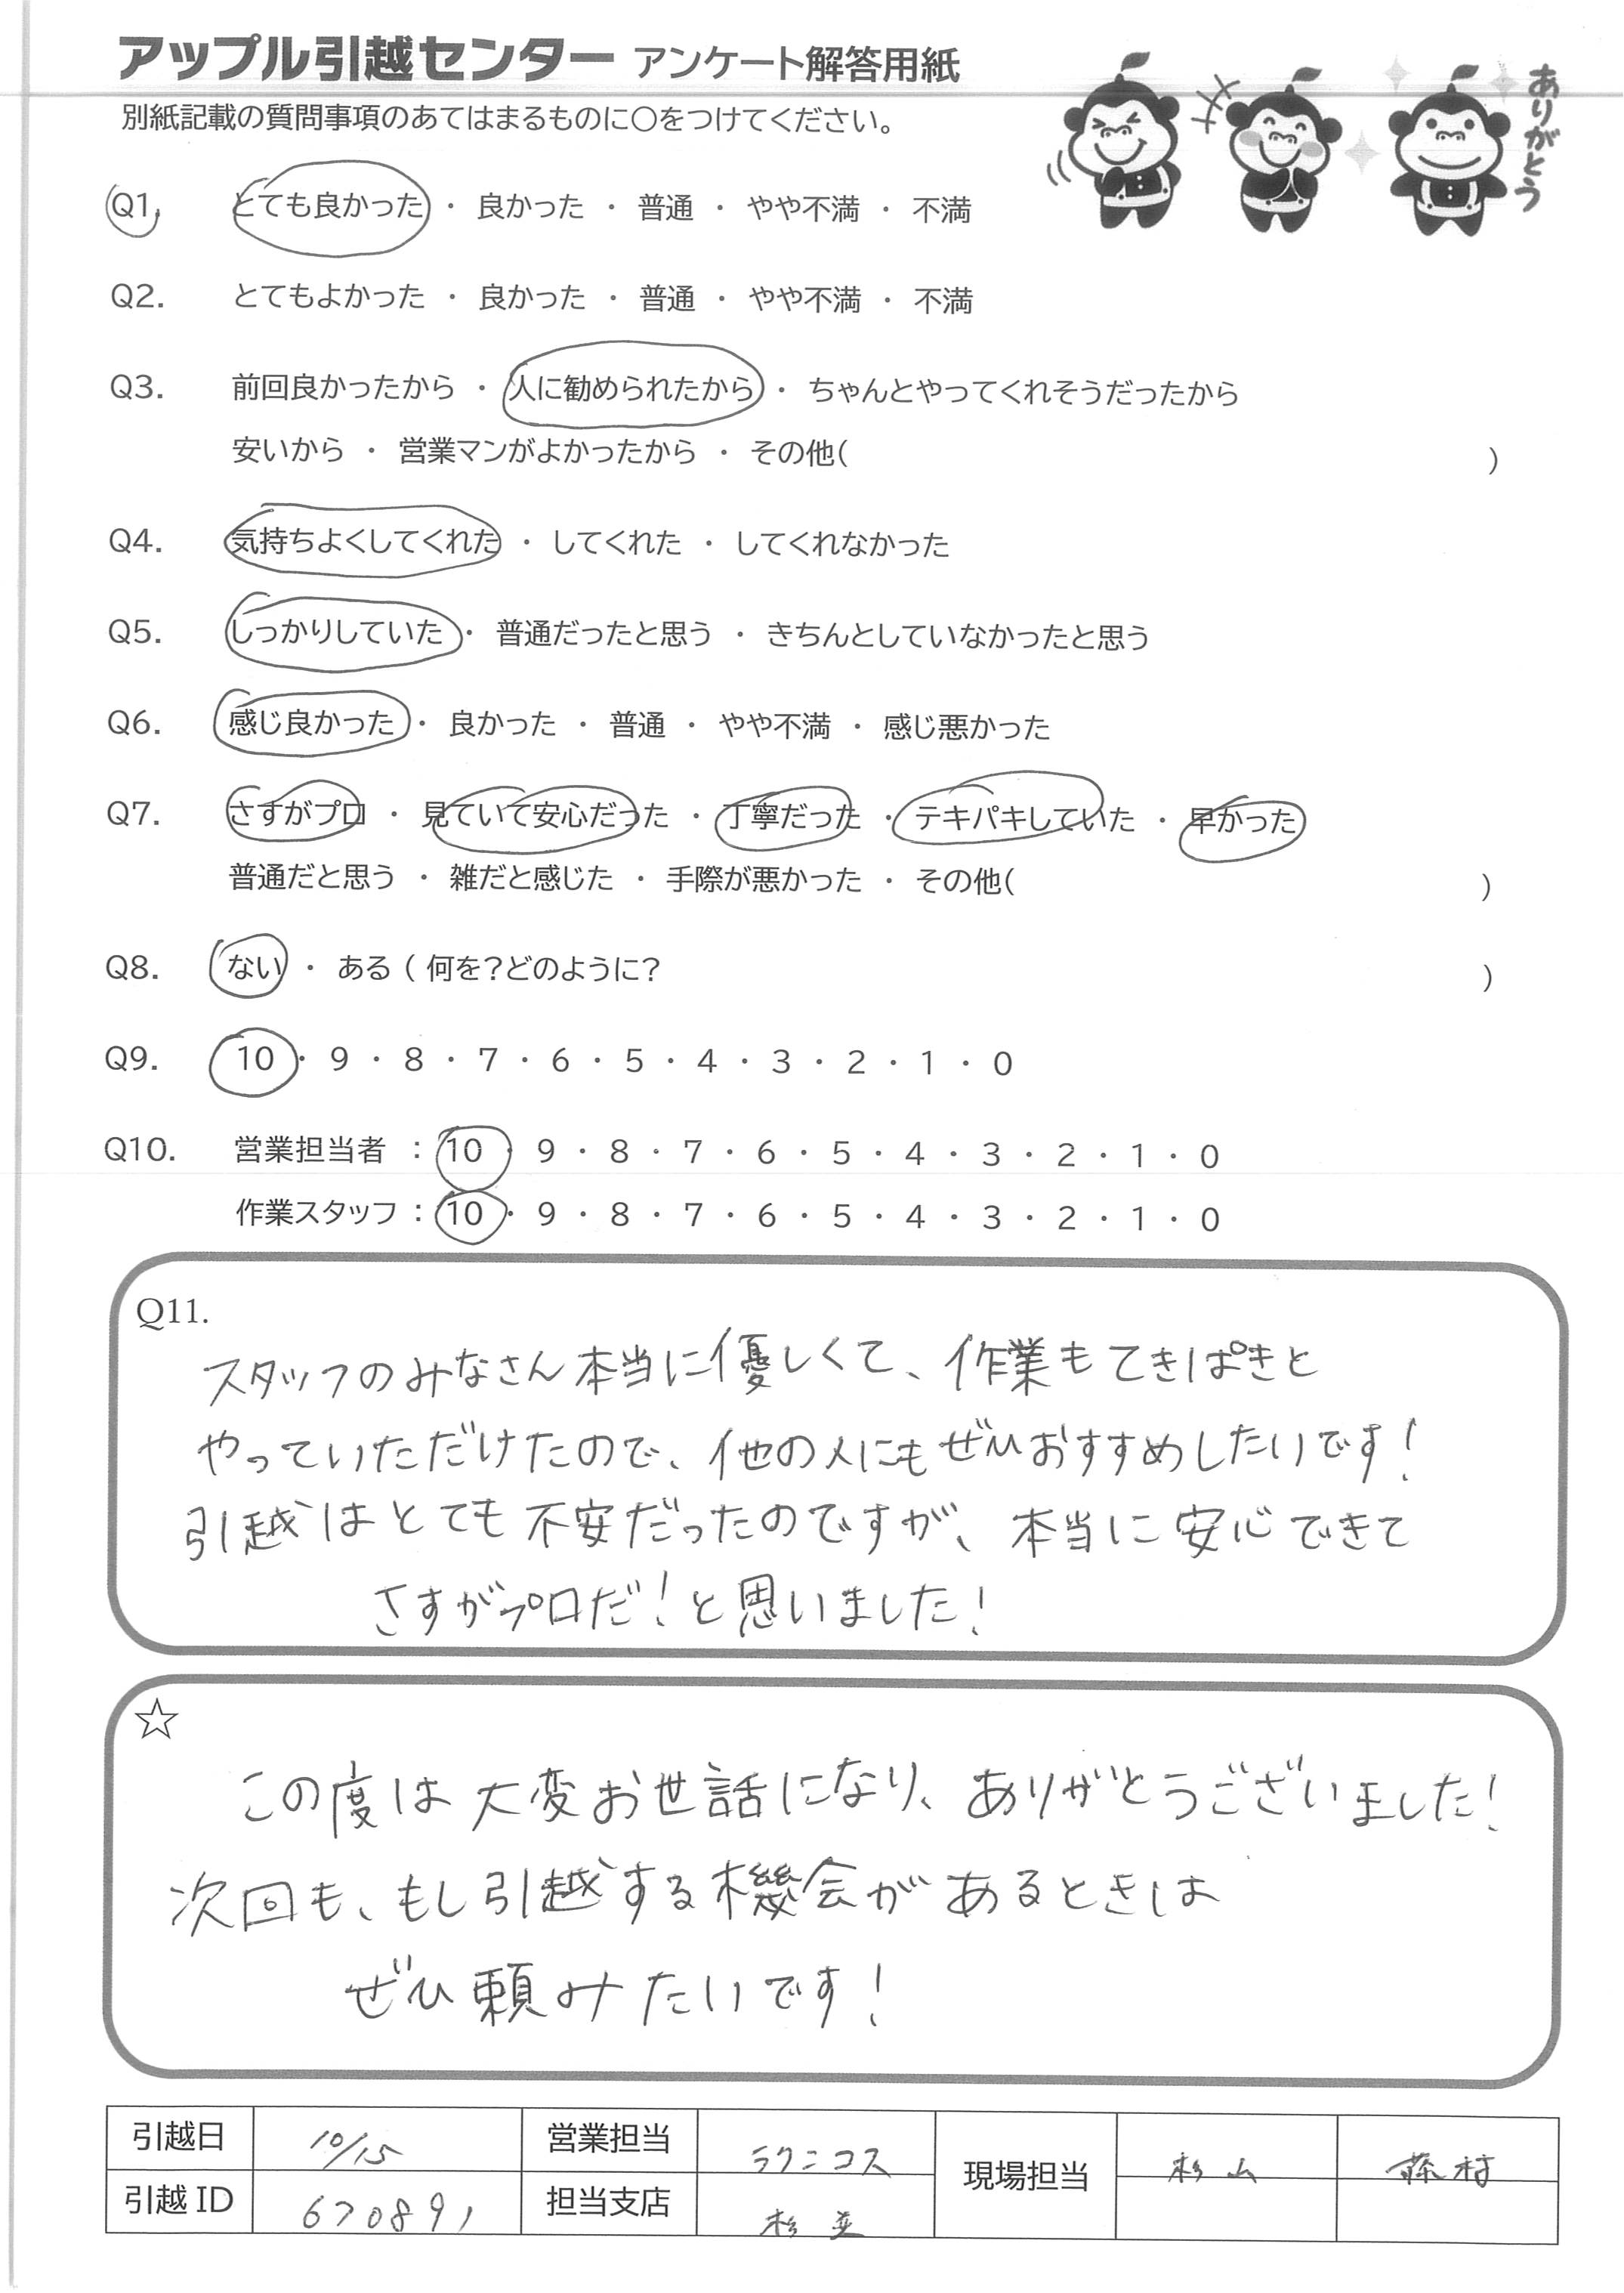 アップル引越センター アンケート解答用紙
ありがとう
別紙記載の質問事項のあてはまるものに〇をつけてください。
Q1. とても良かった ・ 良かった ・ 普通 ・ やや不満 ・ 不満
Q2. とてもよかった ・ 良かった ・ 普通 ・ やや不満 ・ 不満
Q3. 前回良かったから ・ 人に勧められたから ・ ちゃんとやってくれそうだったから
安いから ・ 営業マンがよかったから ・ その他( )
Q4. 気持ちよくしてくれた ・ してくれた ・ してくれなかった
Q5. しっかりしていた ・ 普通だったと思う ・ きちんとしていなかったと思う
Q6. 感じ良かった ・ 良かった ・ 普通 ・ やや不満 ・ 感じ悪かった
Q7. さすがプロ ・ 見ていて安心だった ・ 丁寧だった ・ テキパキしていた ・ 早かった
普通だと思う ・ 雑だと感じた ・ 手際が悪かった ・ その他( )
Q8. ない ・ ある ( 何を?どのように? )
Q9. 10 ・ 9 ・ 8 ・ 7 ・ 6 ・ 5 ・ 4 ・ 3 ・ 2 ・ 1 ・ 0
Q10. 営業担当者 : 10 ・ 9 ・ 8 ・ 7 ・ 6 ・ 5 ・ 4 ・ 3 ・ 2 ・ 1 ・ 0
作業スタッフ : 10 ・ 9 ・ 8 ・ 7 ・ 6 ・ 5 ・ 4 ・ 3 ・ 2 ・ 1 ・ 0
Q11.
スタッフのみなさん本当に優しくて、作業もてきぱきと
やっていただけたので、他の人にもぜひおすすめしたいです!
引越はとても不安だったのですが、本当に安心できて
さすがプロだ!と思いました!
☆
この度は大変お世話になり、ありがとうございました!
次回も、もし引越する機会があるときは
ぜひ頼みたいです!
引越日 10/15 営業担当 ラクニコス 現場担当 杉山 藤村
引越ID 670891 担当支店 杉並